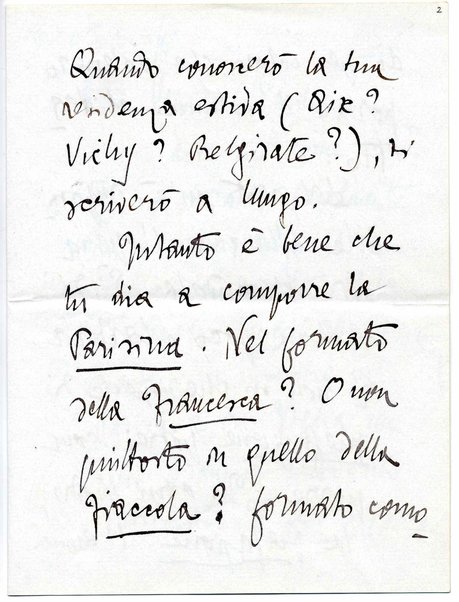 2
Quando conoscerò la tua
residenza estiva (Aix?
Vichy? Belgirate?), ti
scriverò a lungo.
Intanto è bene che
tu dia a comporre la
Parisina. Nel formato
della Francesca? O non
piuttosto in quello della
Fiaccola? formato como-